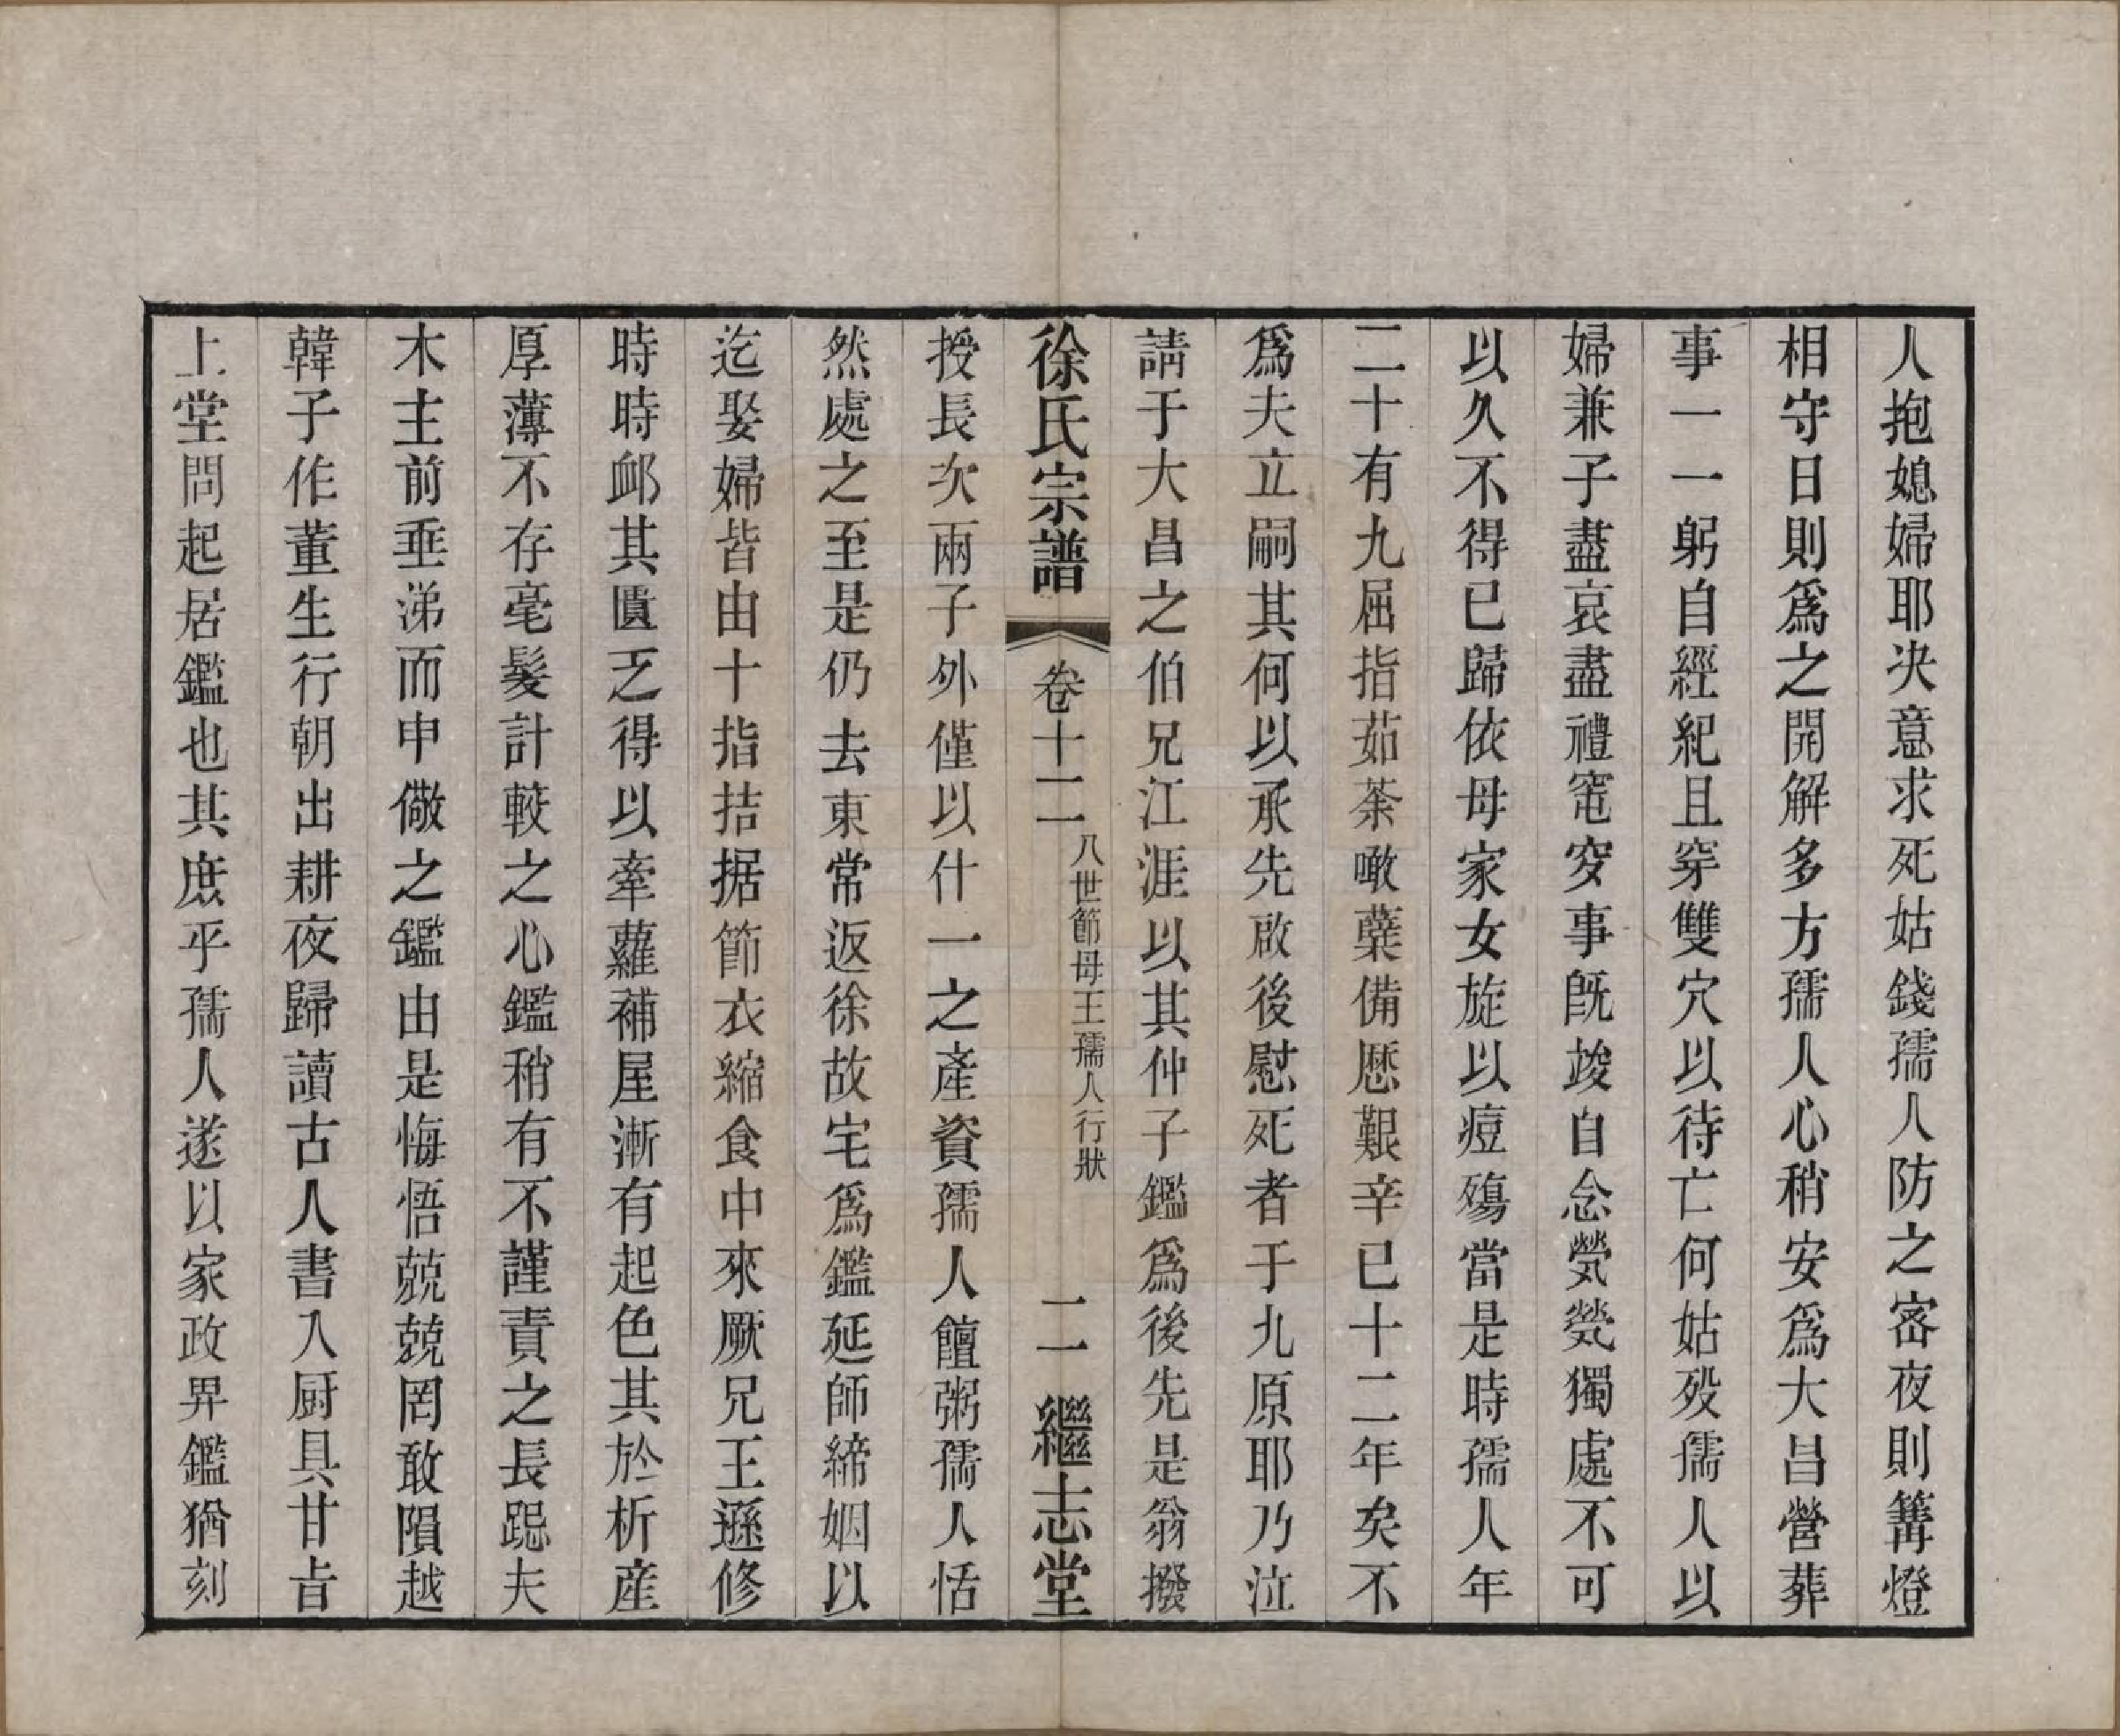 人抱媳婦耶决意求死姑錢孺人防之宻夜則篝燈
相守日則爲之開解多方孺人心稍安爲大昌營葬
事一一躬自經紀且穿雙穴以待亡何姑歿孺人以
婦兼子盡哀盡禮窀穸事旣竣自念煢煢獨處不可
以久不得已歸依母家女旋以痘殤當是時孺人年
二十有九屈指茹荼噉蘗備歴艱辛已十二年矣不
爲夫立嗣其何以承先啟後慰死者于九原耶乃泣
請于大昌之伯兄江涯以其仲子鑑爲後先是翁撥
徐氏宗譜 卷十二 八世節母王孺人行狀 二 繼志堂
授長次兩子外僅以什一之產資孺人饘粥孺人恬
然處之至是仍去東常返徐故宅爲鑑延師締姻以
迄娶婦皆由十指拮据節衣縮食中來厥兄王遜修
時時䘏其匱乏得以牽蘿補屋漸有起色其於析産
厚薄不存毫髮計較之心鑑稍有不謹責之長跽夫
木主前垂涕而申儆之鑑由是悔悟兢兢罔敢隕越
韓子作董生行朝出耕夜歸讀古人書入厨具甘旨
上堂問起居鑑也其庶乎孺人遂以家政畀鑑猶刻